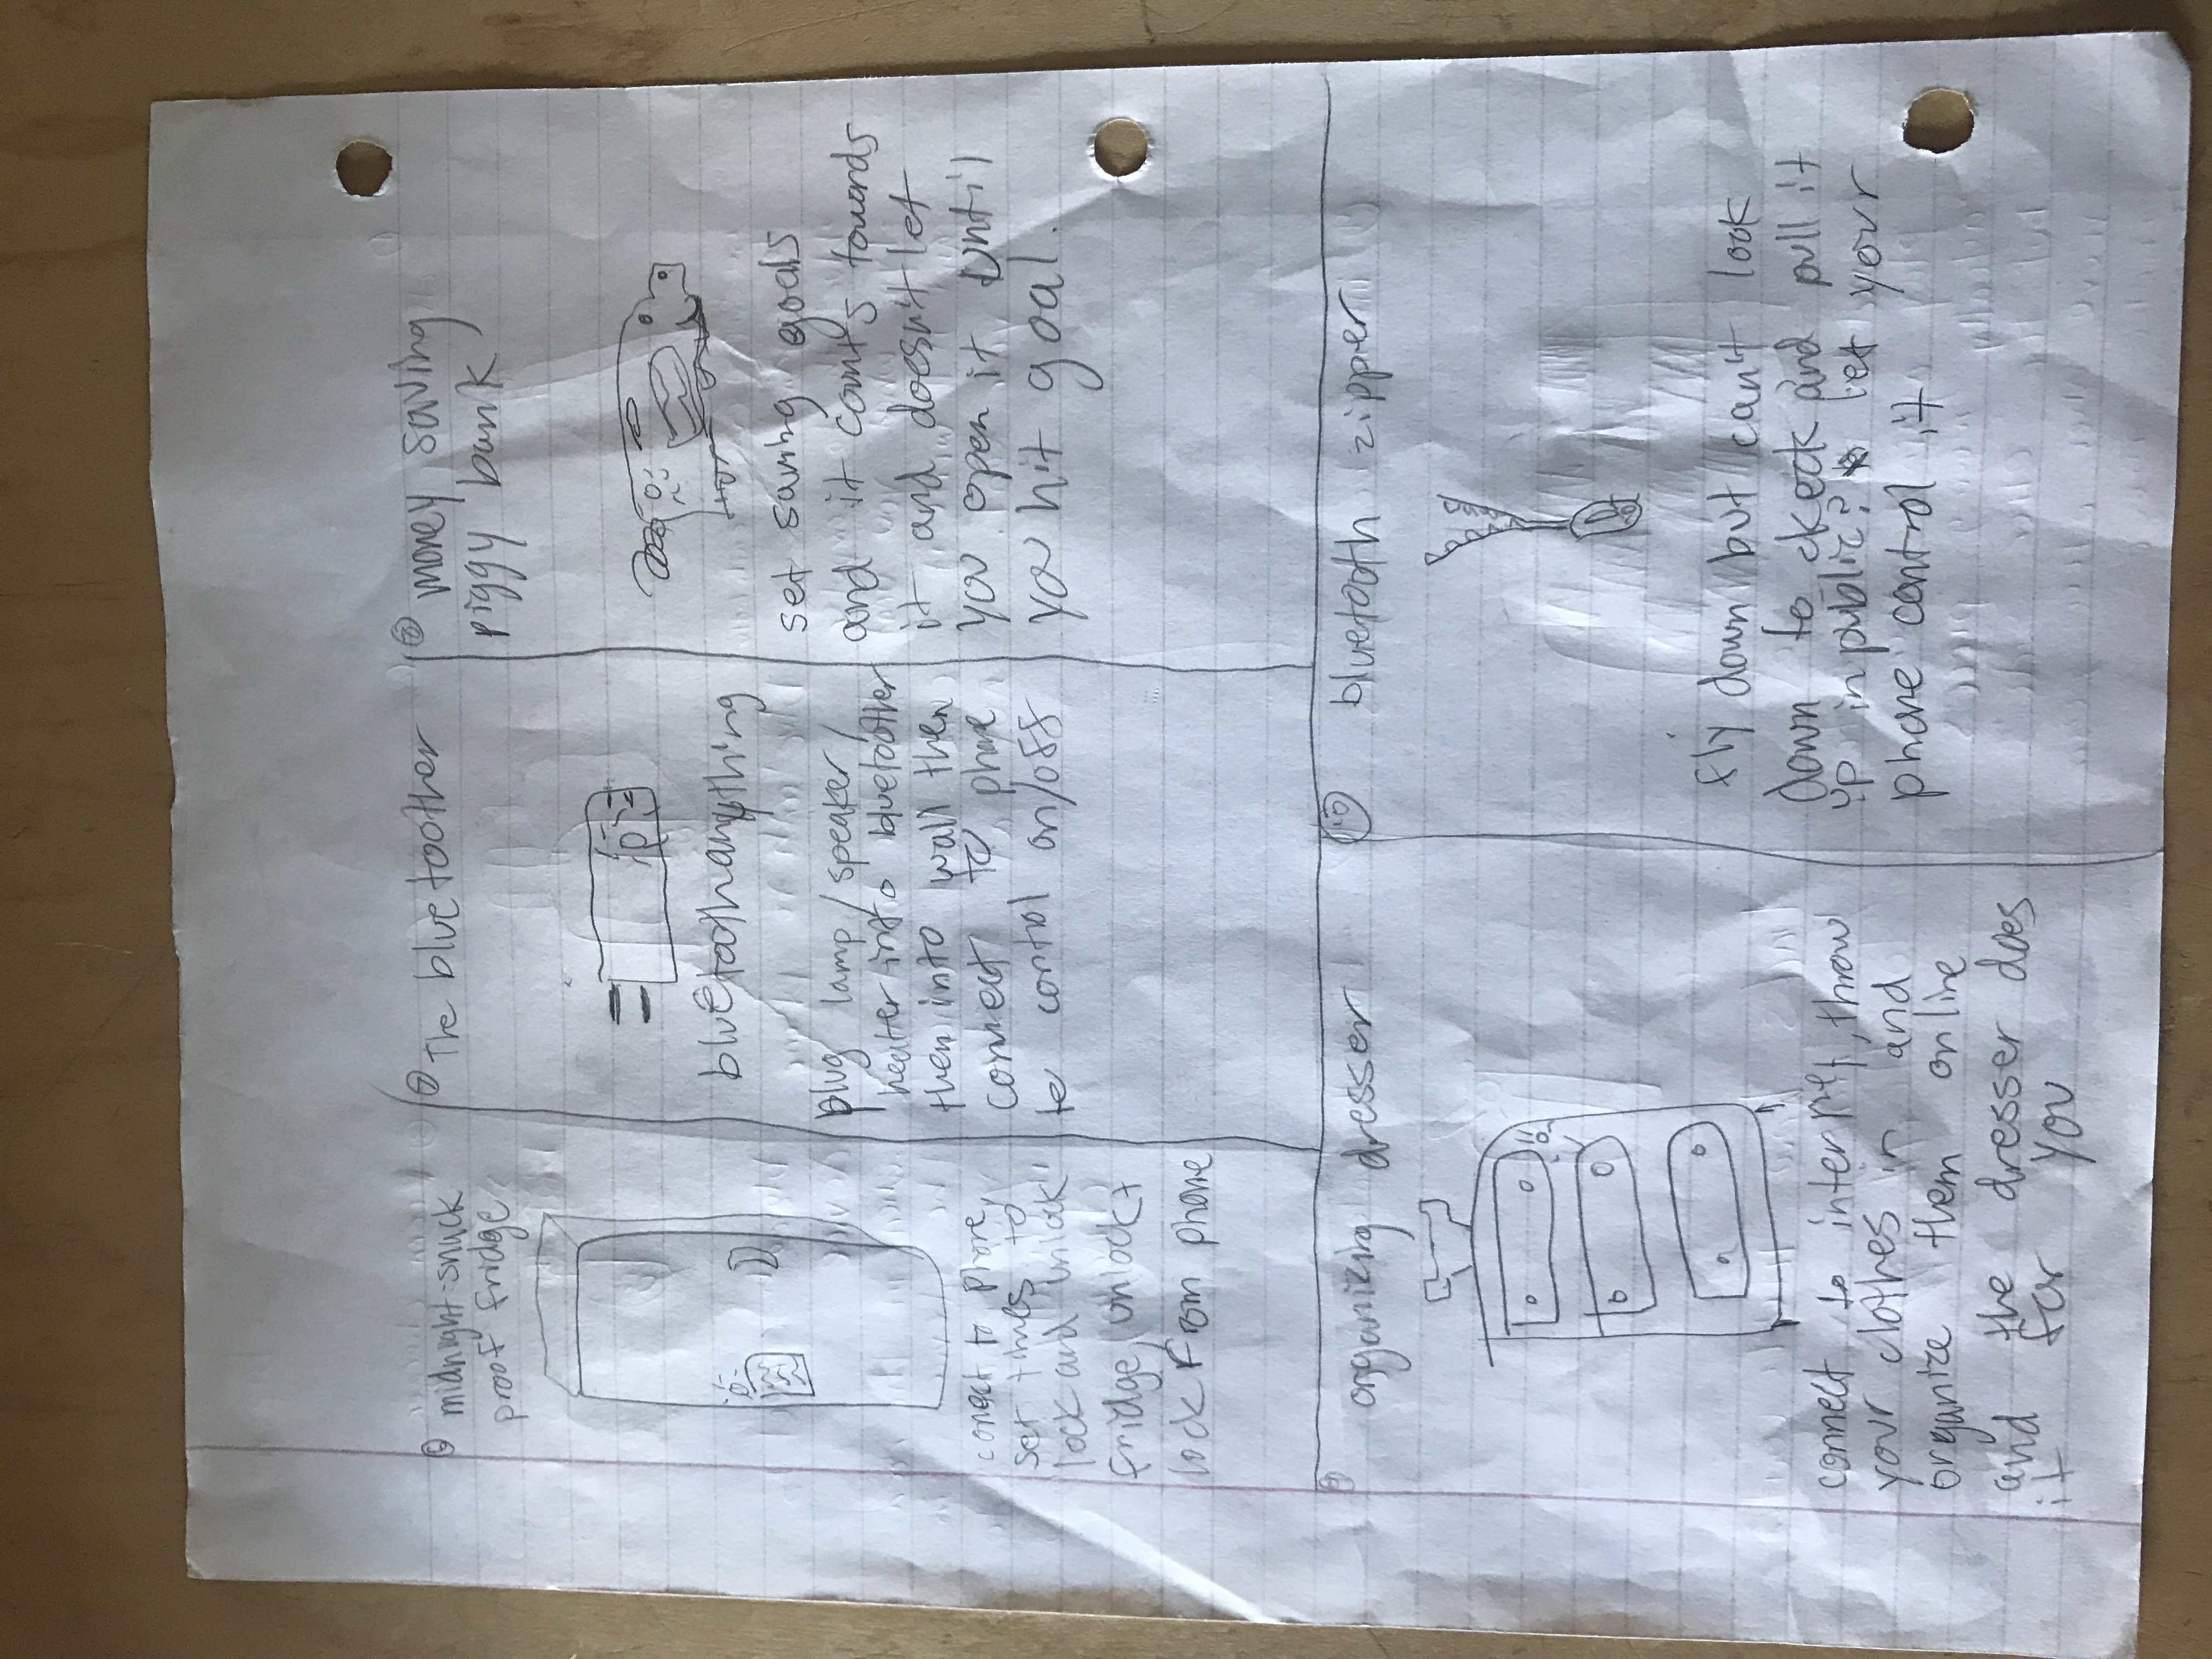 ⑥ midnight snack
proof fridge
conect to phone,
set times to
lock and unlock
fridge, unlock +
lock from phone
⑦ The bluetoother
bluetooth anything
plug lamp/speaker/
heater into bluetoother
then into wall then
connect to phone
to control on/off
⑧ money saving
piggy bank
set saving goals
and it counts towards
it and doesn't let
you open it until
you hit goal.
⑨ organizing dresser
connect to internet, throw
your clothes in and
organize them online
and the dresser does
it for you
⑩ bluetooth zipper
fly down but can't look
down to ckeck and pull it
up in public? let your
phone control it